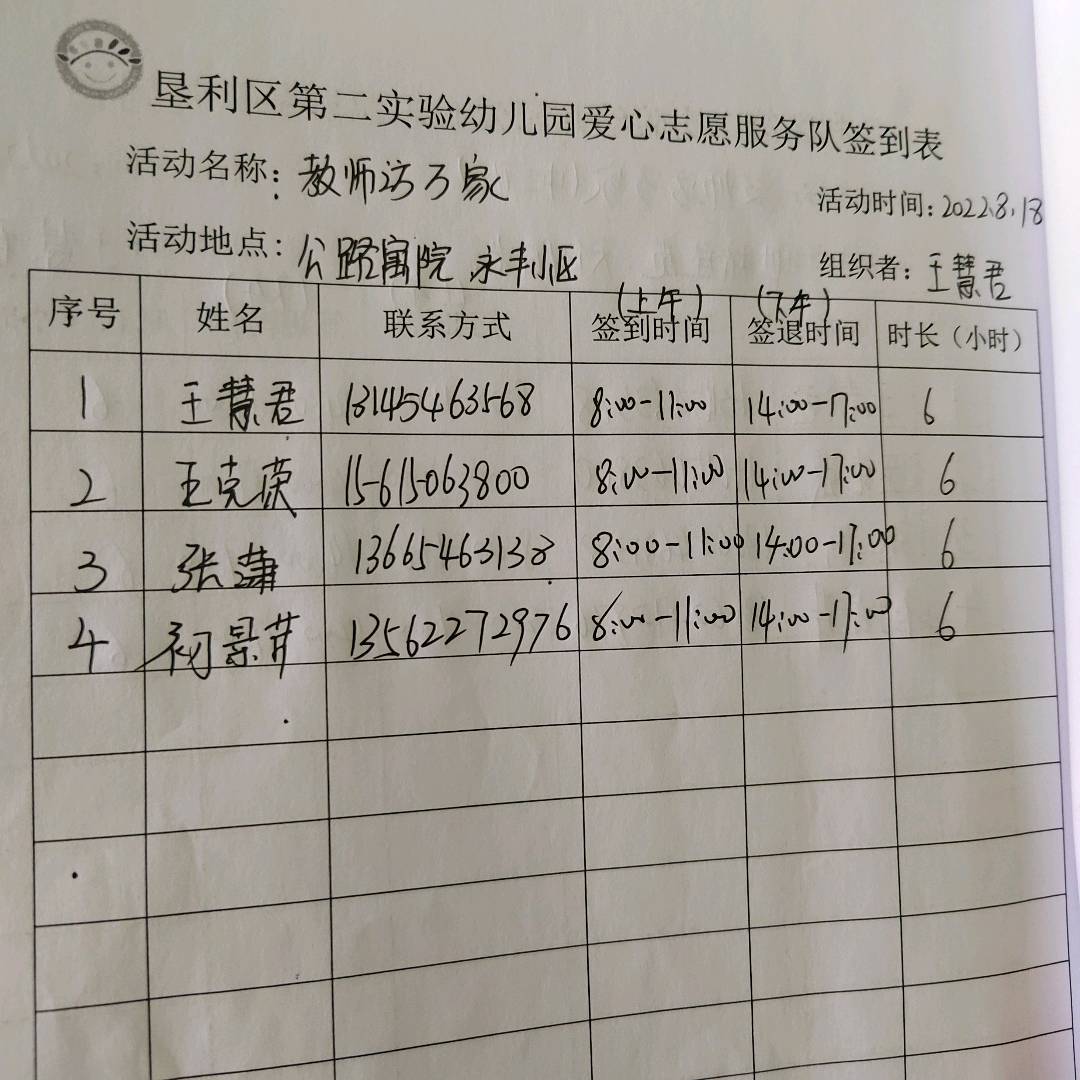 垦利区第二实验幼儿园爱心志愿服务队签到表
活动名称：教师访万家
活动时间：2022.8.18
活动地点：公路寓院 永丰小区
组织者：王慧君
序号 姓名 联系方式 （上午）签到时间 （下午）签退时间 时长（小时）
1 王慧君 13145463568 8:00-11:00 14:00-17:00 6
2 王克荣 15615063800 8:00-11:00 14:00-17:00 6
3 张潇 13665463138 8:00-11:00 14:00-17:00 6
4 初景芹 13562272976 8:00-11:00 14:00-17:00 6